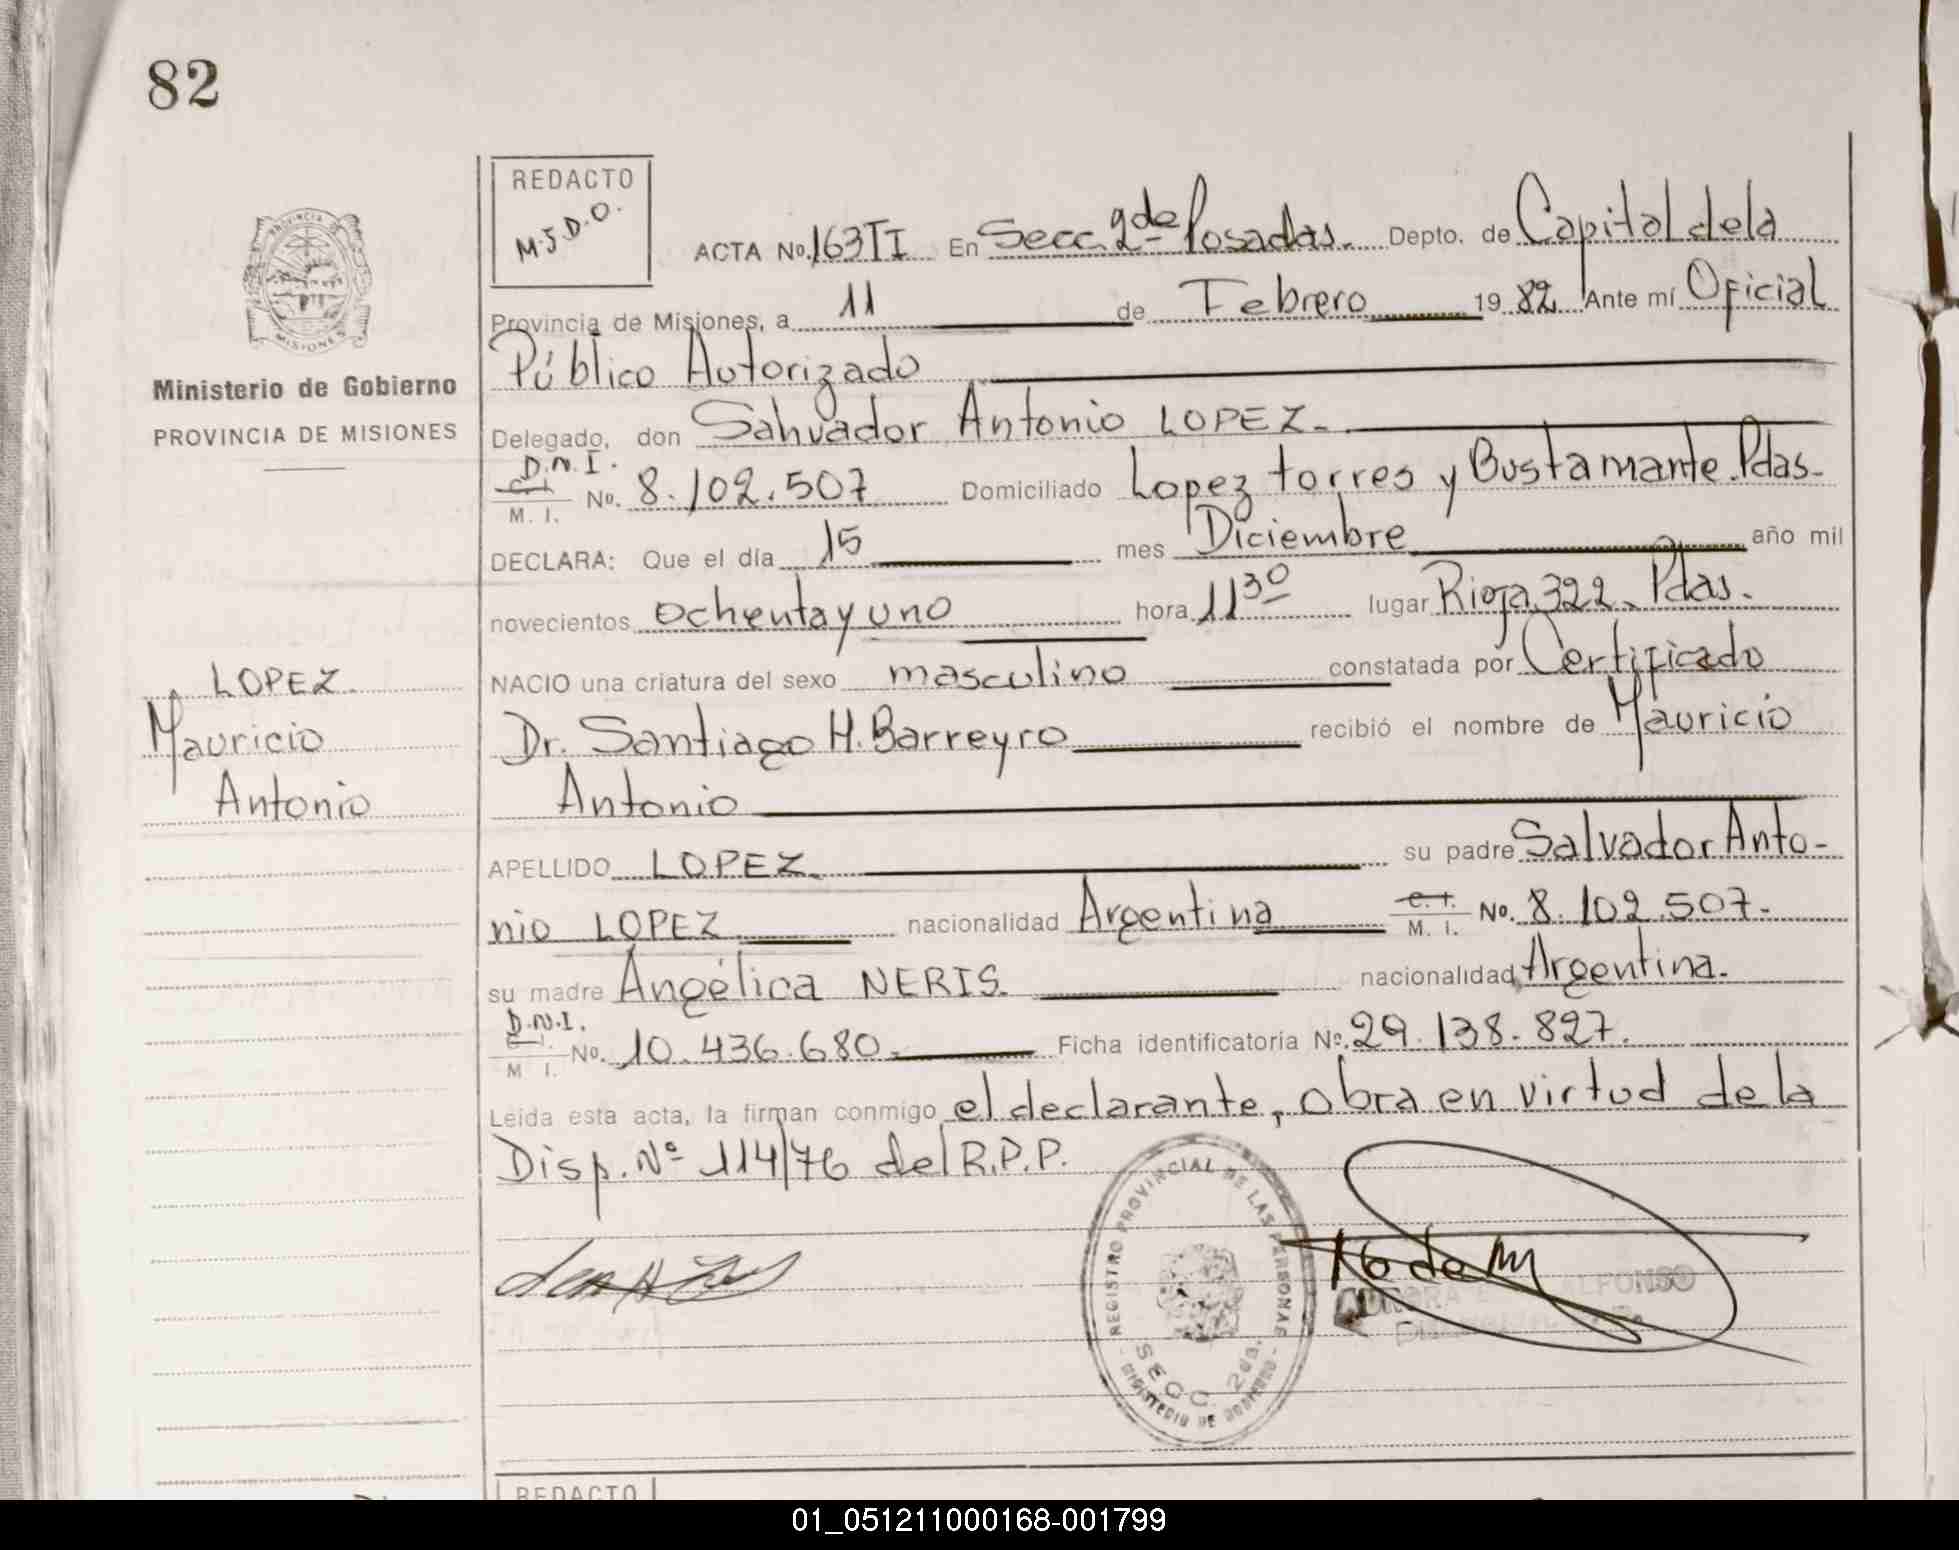 82
REDACTO
M.J.D.O.
ACTA No. 163 TI En Secc. 2da Posadas. Depto. de Capital de la
Provincia de Misiones, a 11 de Febrero 19 82 Ante mí Oficial
Público Autorizado
PROVINCIA
MISIONES
Ministerio de Gobierno
PROVINCIA DE MISIONES
Delegado, don Salvador Antonio LOPEZ.
D.N.I.
C. I.
M. I. No. 8.102.507 Domiciliado Lopez torres y Bustamante. Pdas-
DECLARA: Que el día 15 mes Diciembre año mil
novecientos ochenta y uno hora 11 30 lugar Rioja 322. Pdas.
NACIO una criatura del sexo masculino constatada por Certificado
Dr. Santiago H. Barreyro recibió el nombre de Mauricio
Antonio
LOPEZ.
Mauricio
Antonio
APELLIDO LOPEZ. su padre Salvador Anto-
nio LOPEZ nacionalidad Argentina C. I. M. I. No. 8.102.507-
su madre Angélica NERIS. nacionalidad Argentina.
D.N.I.
C. I.
M. I. No. 10.436.680. Ficha identificatoria Nº. 29.138.827.
Leída esta acta, la firman conmigo el declarante, obra en virtud de la
Disp. Nº 114/76 del R.P.P.
REGISTRO PROVINCIAL DE LAS PERSONAS
SECC. 2da.
MINISTERIO DE GOBIERNO
ALFONSO
REDACTO
01_051211000168-001799